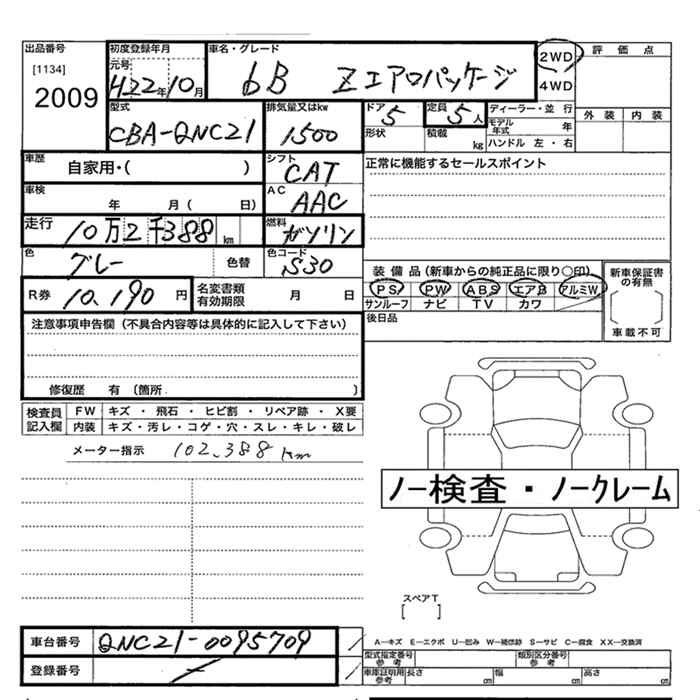 出品番号 初度登録年月 車名・グレード 2WD 評価点
[1134] 元号 4WD
2009 H22年10月 bB Zエアロパッケージ
型式 排気量又はkw ドア 定員 ディーラー・並行 外装 内装
CBA-QNC21 1500 5 5人 モデル年式 年
形状 積載 kg ハンドル 左・右
車歴 自家用・( ) シフト CAT 正常に機能するセールスポイント
車検 年 月( 日) AC AAC
走行 10万2千388km 燃料 ガソリン
色 グレー 色替 色コード S30
装備品(新車からの純正品に限り○印) 新車保証書の有無
R券 10,190円 名変書類有効期限 月 日 PS PW ABS エアB アルミW
サンルーフ ナビ TV カワ
注意事項申告欄(不具合内容等は具体的に記入して下さい) 後日品 車載不可
修復歴 有 (箇所 )
検査員 FW キズ・飛石・ヒビ割・リペア跡・X要
記入欄 内装 キズ・汚レ・コゲ・穴・スレ・キレ・破レ
メーター指示 102,388km
ノー検査・ノークレーム
スペアT
[ ]
車台番号 QNC21-0095709
A-キズ E-エクボ U-凹み W-補修跡 S-サビ C-腐食 XX-交換済
登録番号
型式指定番号 参考 類別区分番号 参考
車庫証明用 参考 長さ cm 幅 cm 高さ cm